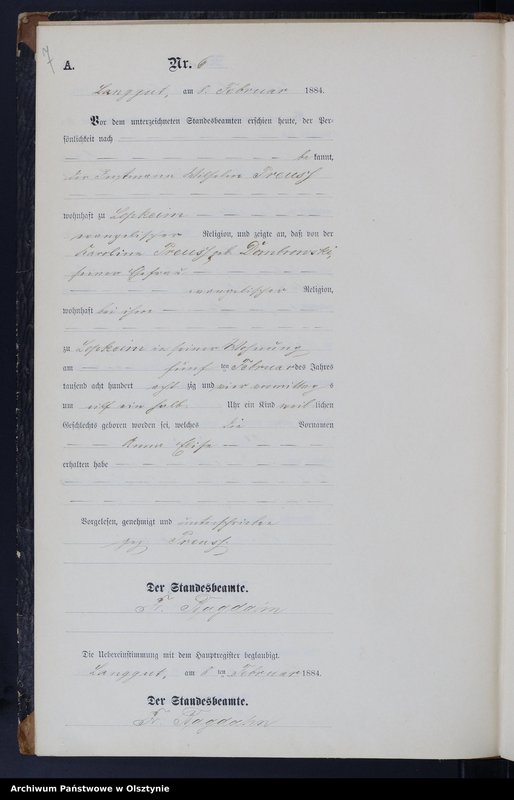 7
A.
Nr. 6
Langgut, am 8. Februar 1884.
Vor dem unterzeichneten Standesbeamten erschien heute, der Per-
sönlichkeit nach
be kannt,
der Instmann Wilhelm Preuss
wohnhaft zu
evangelischer Religion, und zeigte an, daß von der
Karoline Preuss geb. Dombrowski,
seiner Ehefrau
evangelischer Religion,
wohnhaft bei ihm
zu in seiner Wohnung
am fünf ten Februar des Jahres
tausend acht hundert acht zig und vier Vormittag s
um elf ein halb Uhr ein Kind weib lichen
Geschlechts geboren worden sei, welches die Vornamen
Anna
erhalten habe
Vorgelesen, genehmigt und unterschrieben
gez Preuss.
Der Standesbeamte.
Die Uebereinstimmung mit dem Hauptregister beglaubigt.
Langgut, am 8 ten Februar 1884.
Der Standesbeamte.
Archiwum Państwowe w Olsztynie